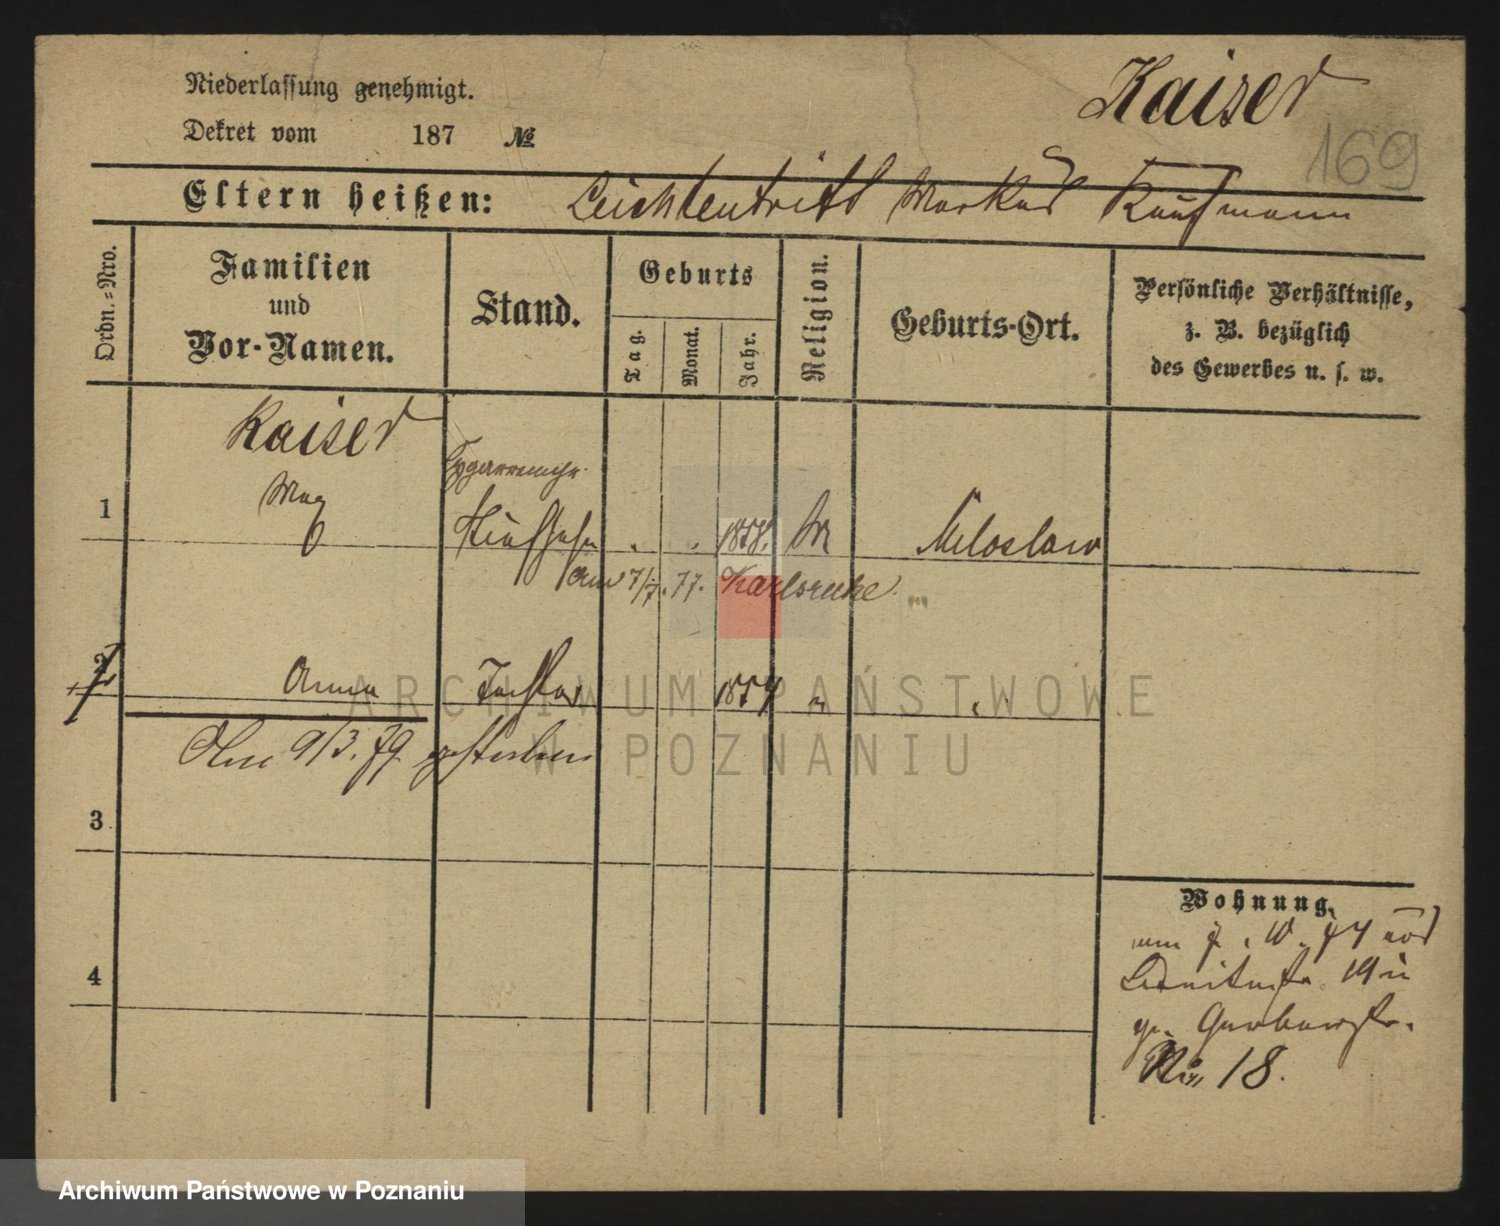 Niederlassung genehmigt.
Dekret vom 187 №
Kaiser
169
Eltern heißen: Leichtentritt Markus Kaufmann
Ordn.=Nro.
Familien
und
Vor-Namen.
Stand.
Geburts
Tag.
Monat.
Jahr.
Religion.
Geburts-Ort.
Persönliche Verhältnisse,
z. B. bezüglich
des Gewerbes u. s. w.
Kaiser
1 Max 1858. M Miloslaw
am 7/7. 77. Karlsruhe
2 Anna Tochter 1854 "
Am 9/3. 79. gestorben
3
4
Wohnung.
19
Gerberstr.
No. 18.
ARCHIWUM PAŃSTWOWE
W POZNANIU
Archiwum Państwowe w Poznaniu